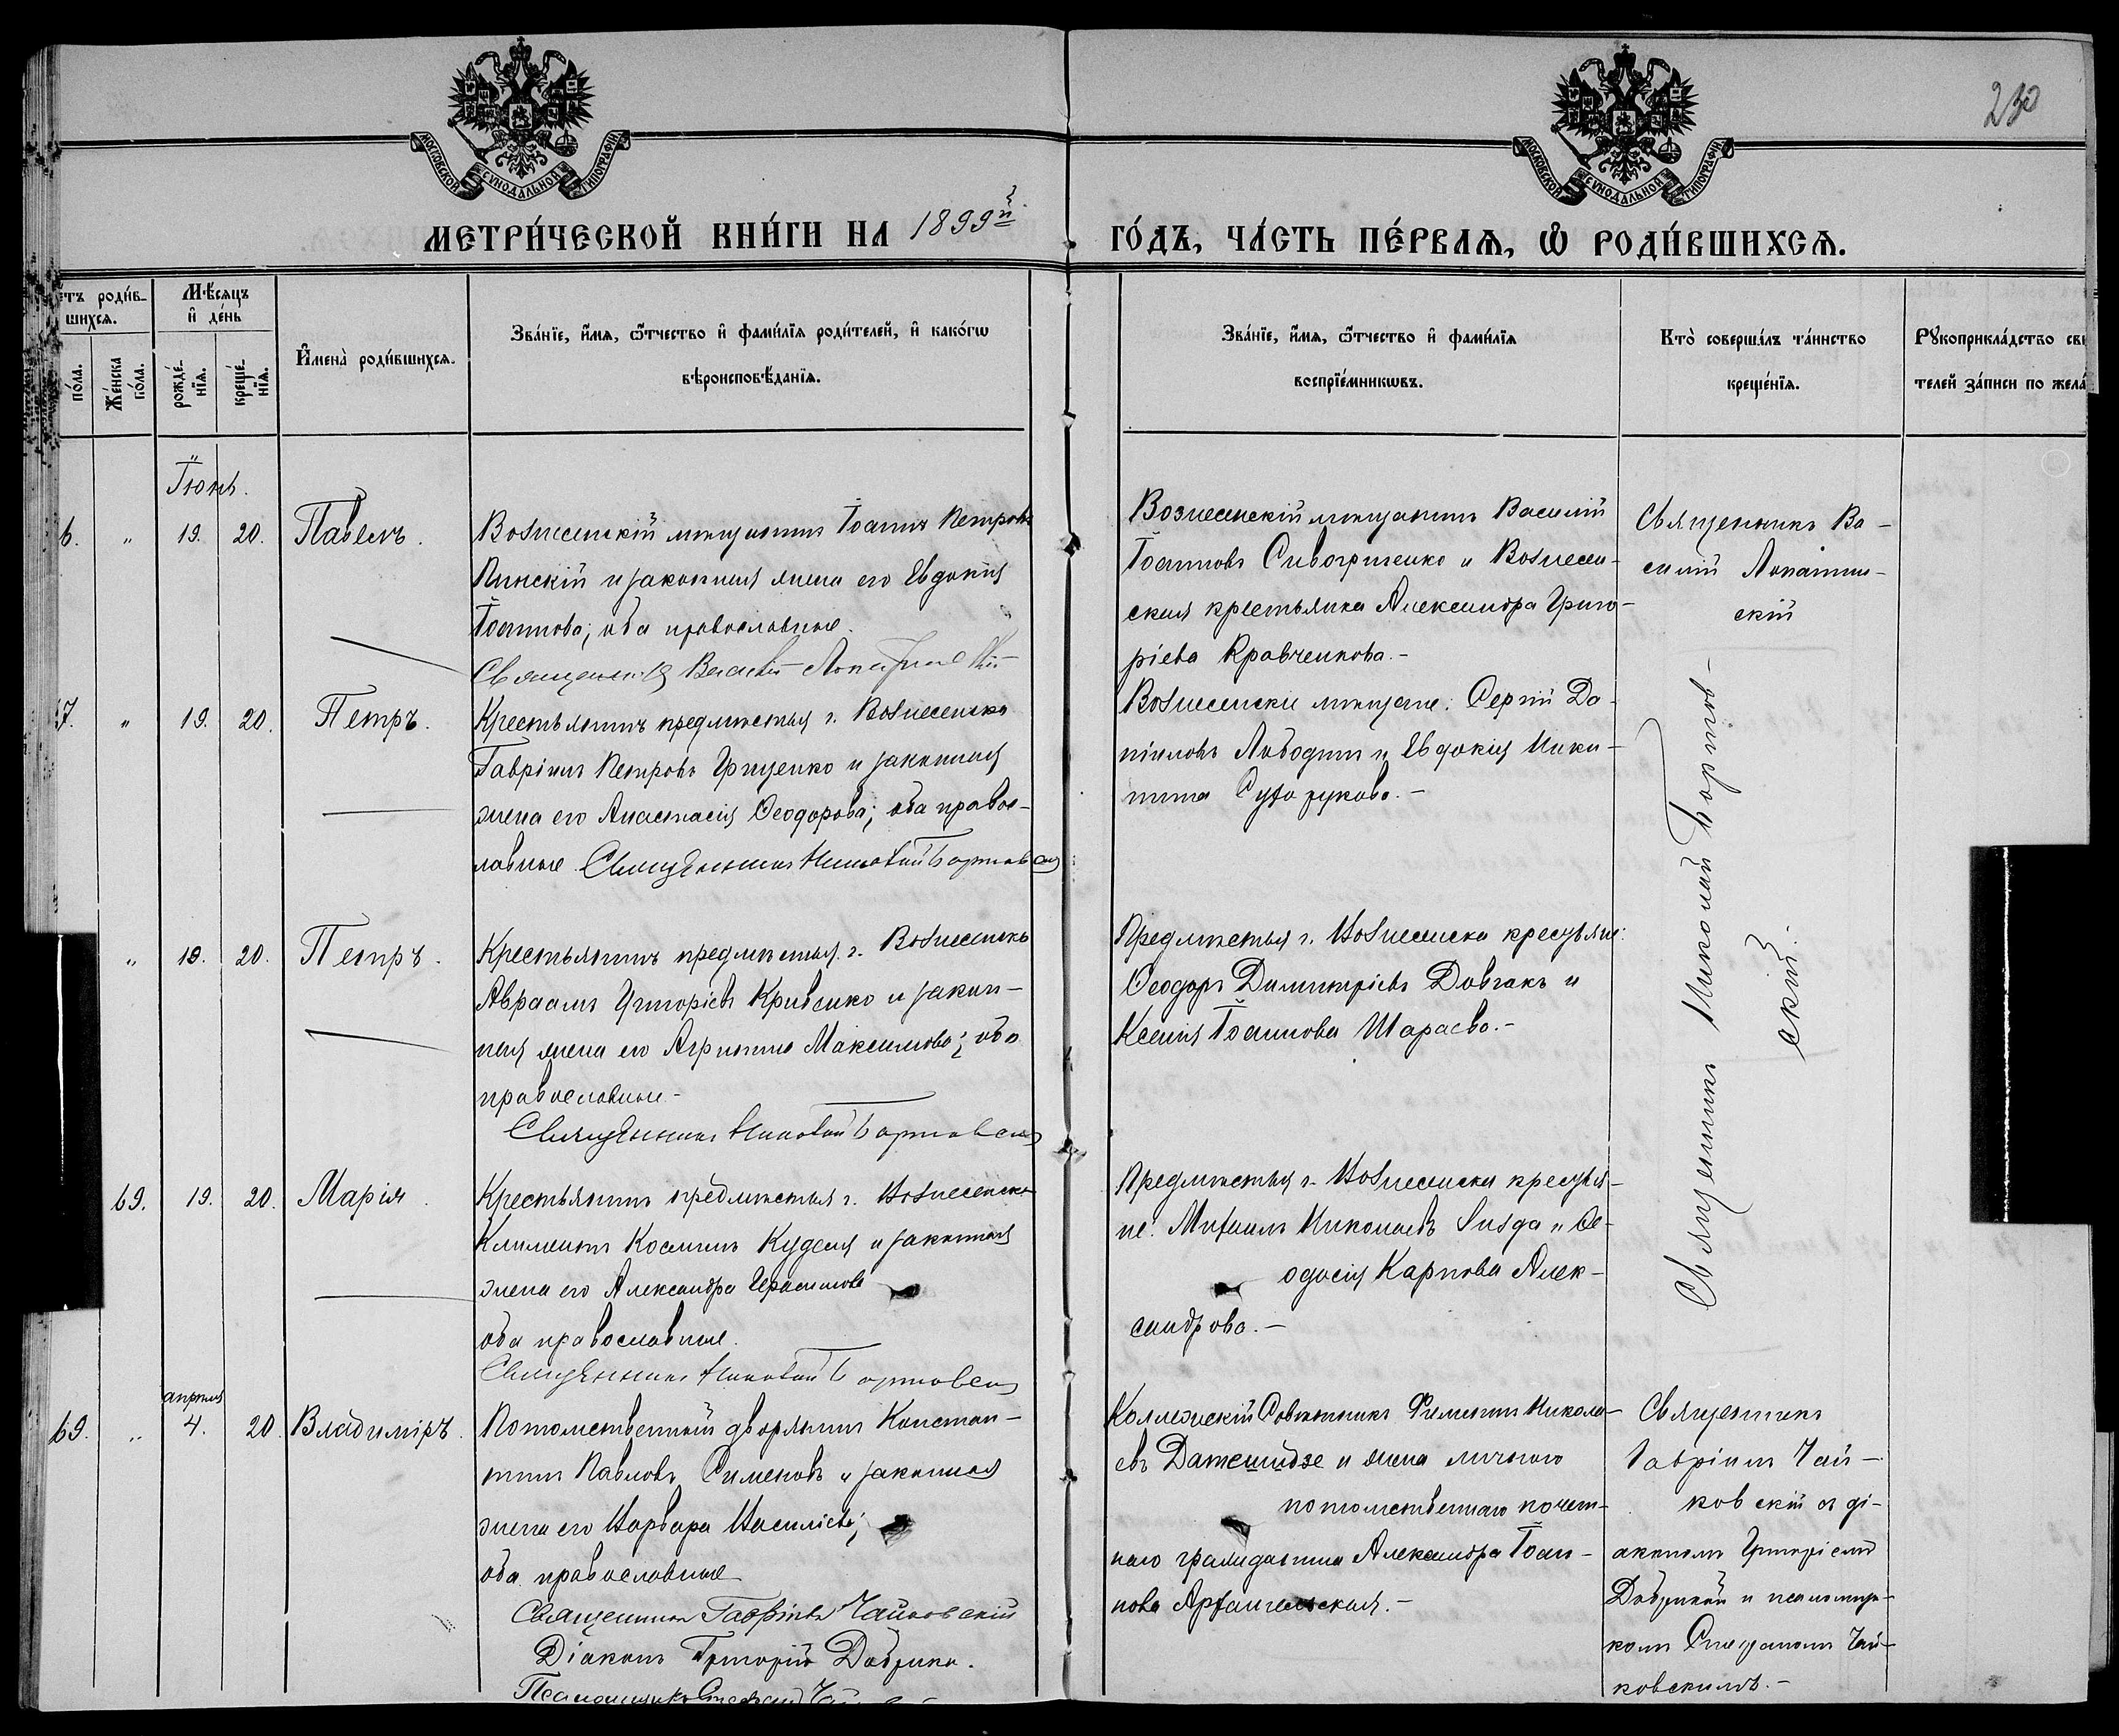 МОСКОВСКОЙ СУНОДАЛЬНОЙ ТИПОГРАФІИ
МЕТРИ́ЧЕСКОЙ КНИ́ГИ НА 1899й
МОСКОВСКОЙ СУНОДАЛЬНОЙ ТИПОГРАФІИ
230
ГО́ДЪ, ЧА́СТЬ ПЕ́РВАѦ, Ѡ РОДИ́ВШИХСѦ.
етъ роди́в-
шихся.
Мѣсяцъ
и де́нь
по́ла.
Же́нска
по́ла.
рожде́-
нїя.
креще́-
нїя.
Имена̀ роди́вшихся.
Зва́нїе, имя, ѻтчество и фами́лїя роди́телей, и како́гѡ
вѣроисповѣ́данїя.
Зва́нїе, имя, ѻтчество и фами́лїя
воспрїе́мникѡвъ.
Кто̀ соверша́лъ та́инство
креще́нїя.
Рꙋкоприкла́дство сви
телей за́писи по жела́
Іюнь.
6. " 19. 20. Павелъ.
Вознесенскій мѣщанинъ Іоаннъ Петровъ
Пинскій и законная жена его Евдокія
Іоаннова; оба православные.
Священникъ Василій
Вознесенскій мѣщанинъ Василій
Іоанновъ Сивогриженко и Вознесен-
ская крестьянка Александра Григо-
ріева Кравченкова.-
Священникъ Ва-
силій Лопатин-
скій
7. " 19. 20. Петръ.
Крестьянинъ предмѣстья г. Вознесенска
Гавріилъ Петровъ Грищенко и законная
жена его Анастасія Ѳеодорова; оба право-
славные. Священникъ Николай Бортовскій
Вознесенские мѣщане: Сергій Да-
ніиловъ Лободинъ и Евдокія Ники-
тина Сухорукова.-
Священникъ Николай Бортов-
скій.
" 19. 20. Петръ.
Крестьянинъ предмѣстья г. Вознесенска
Авраамъ Григоріевъ Кривенко и закон-
ная жена его Агриппина Максимова; оба
православные-
Священникъ Николай Бортовскій
Предмѣстья г. Вознесенска крестьяне:
Ѳеодоръ Димитріевъ Довгакъ и
Ксенія Іоаннова Шараева.-
69. 19. 20. Марія.
Крестьянинъ предмѣстья г. Вознесенска
Климентъ Косминъ Куделя и законная
жена его Александра Герасимова
оба православные.
Священникъ Николай Бортовскій
Предмѣстья г. Вознесенска крестья-
не: Михаилъ Николаевъ и Ѳе-
одосія Карпова Алек-
сандрова.-
апрѣля
69. " 4. 20. Владиміръ.
Потомственный дворянинъ Констан-
тинъ Павловъ Сименовъ и законная
жена его Варвара Василіева;
оба православные
Священникъ Гавріилъ Чайковскій
Діаконъ Григорій Добрика.
Псаломщикъ Стефанъ
Коллежскій Совѣтникъ Филиппъ Никола-
евъ Датешидзе и жена личнаго
потомственнаго почет-
наго гражданина Александра Іоан-
нова Архангельская.-
Священникъ
Гавріилъ Чай-
ковскій съ ді-
акономъ Григоріемъ
Добрикой и псаломщи-
комъ Стефаномъ Чай-
ковскимъ.-